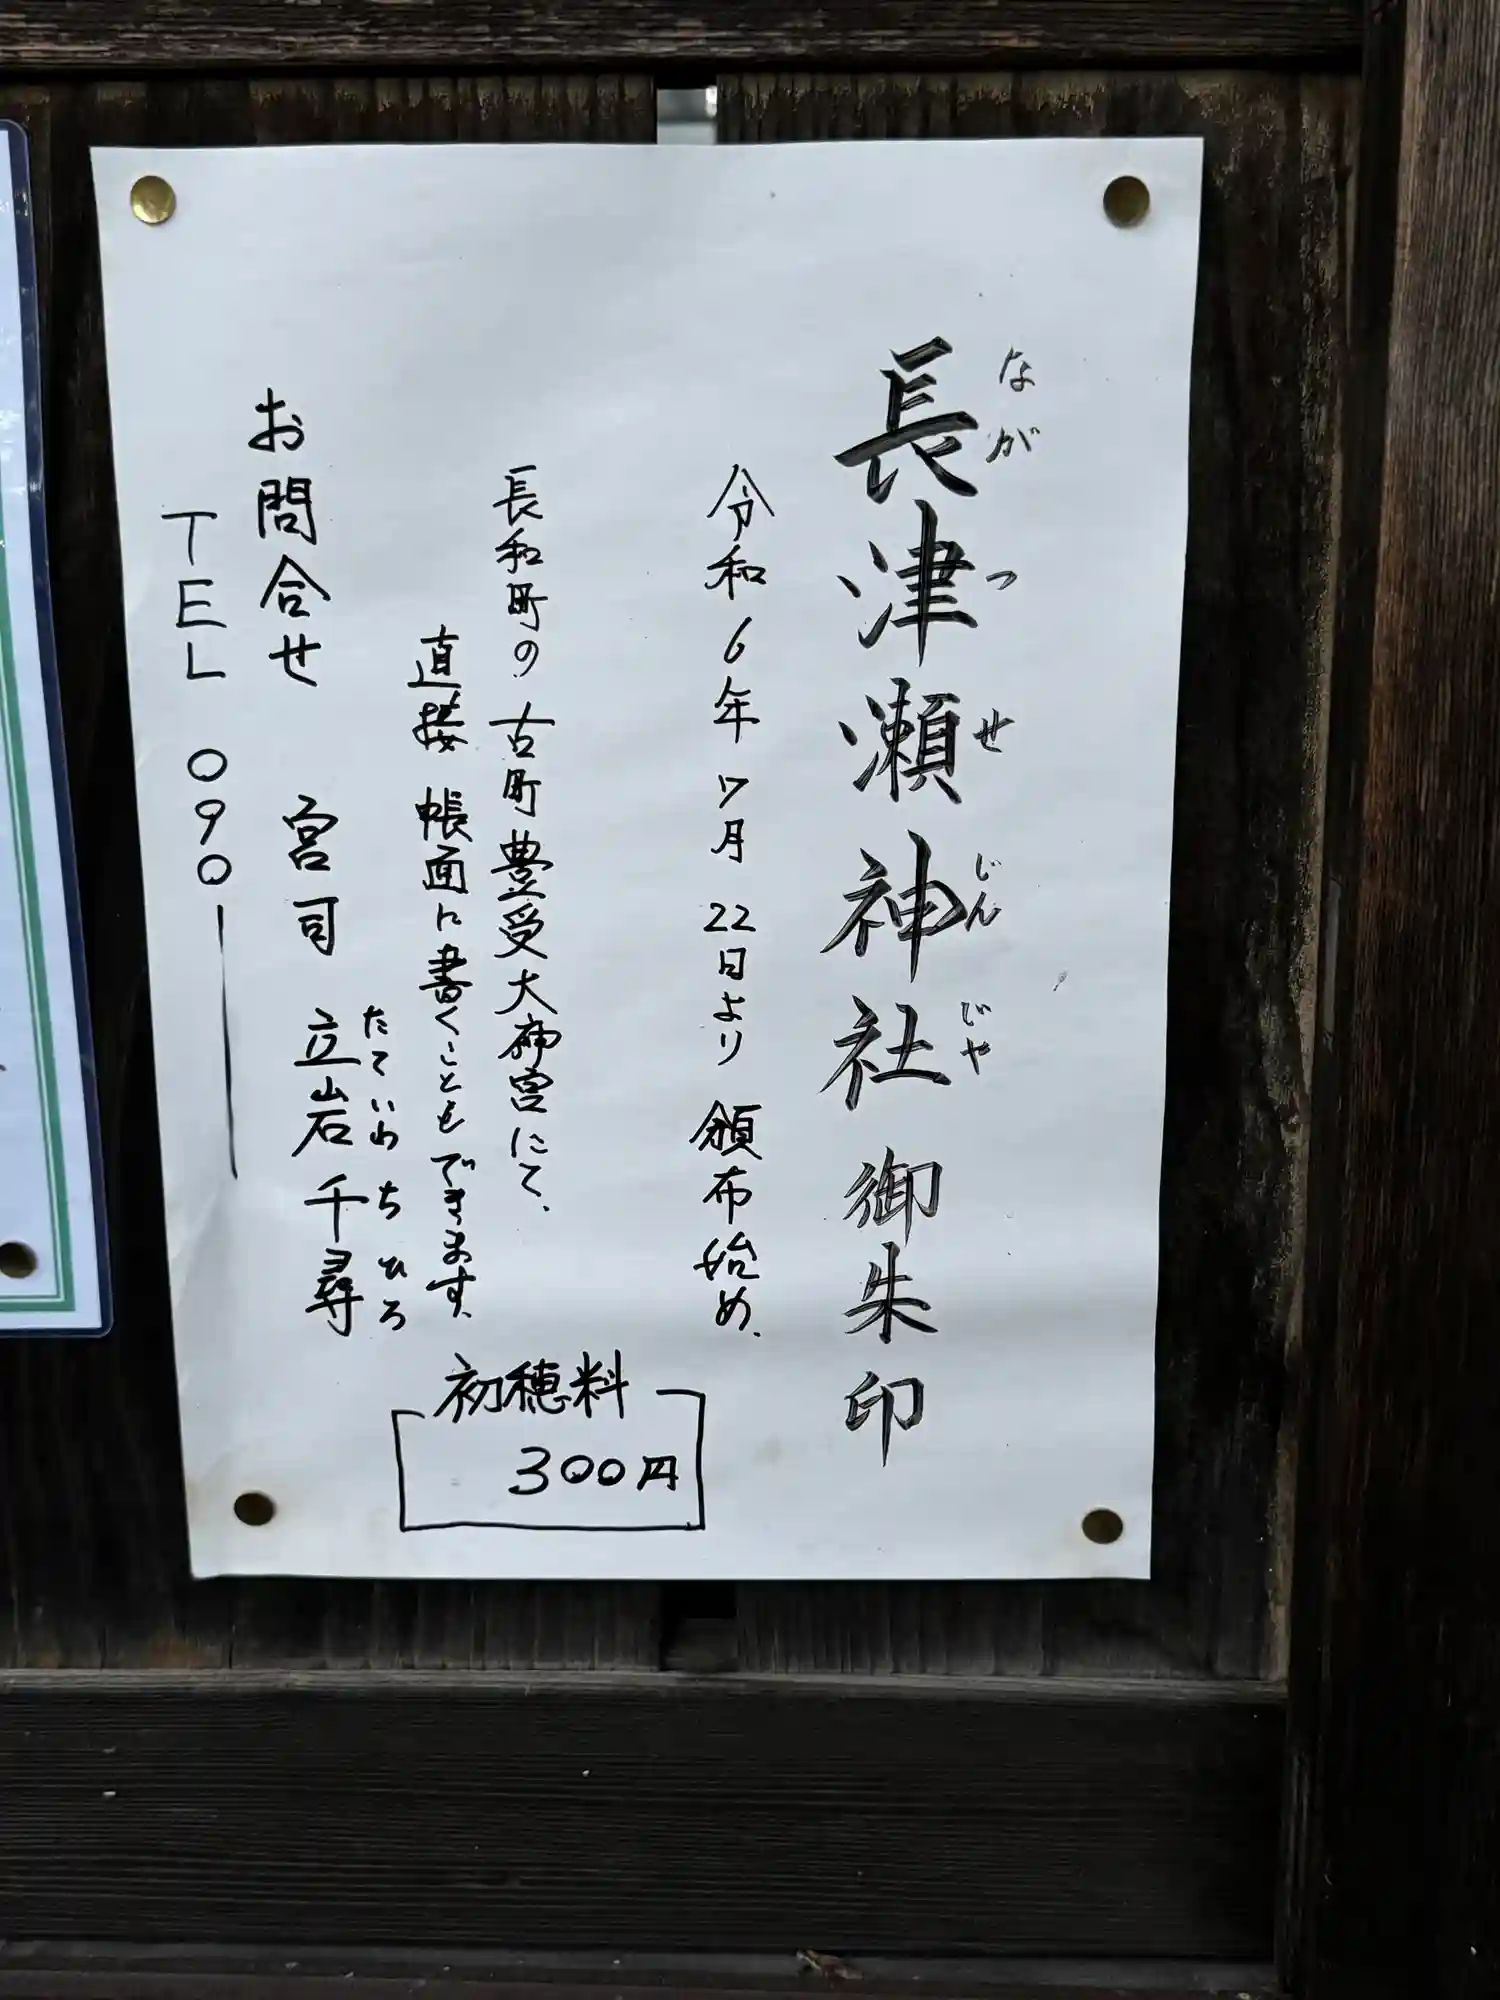 長津瀬神社 御朱印
ながつせじんじゃ
令和6年7月22日より 頒布始め.
長和町の 古町豊受大神宮にて、
直接 帳面に書くこともできます。
初穂料
300円
お問合せ 宮司 立岩千尋
たていわ ちひろ
TEL 090-